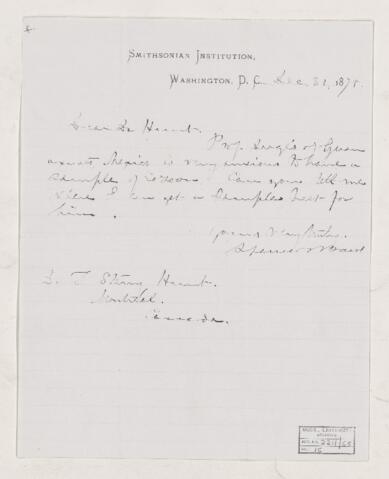 Smithsonian Institution,
Washington, D. C. Dec. 31, 187
Dear Dr Hunt.
Prof. of
Mexico is very anxious to have a
sample of Eozoon. Can you tell me
where I can get a sample for
him.
Yours very truly,
Spencer F Baird
Dr. T Sterry Hunt.
Montreal.
Canada.